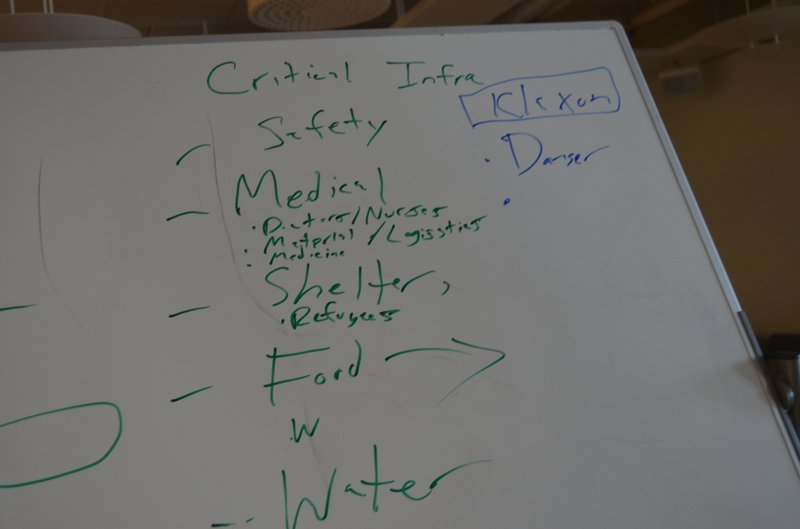 Critical Infra
Klaxon
- Safety
• Danger
- Medical
• Doctors/Nurses
• Material/Logisstics
• Medicine
- Shelter,
• Refugees
- Food →
• W
- Water